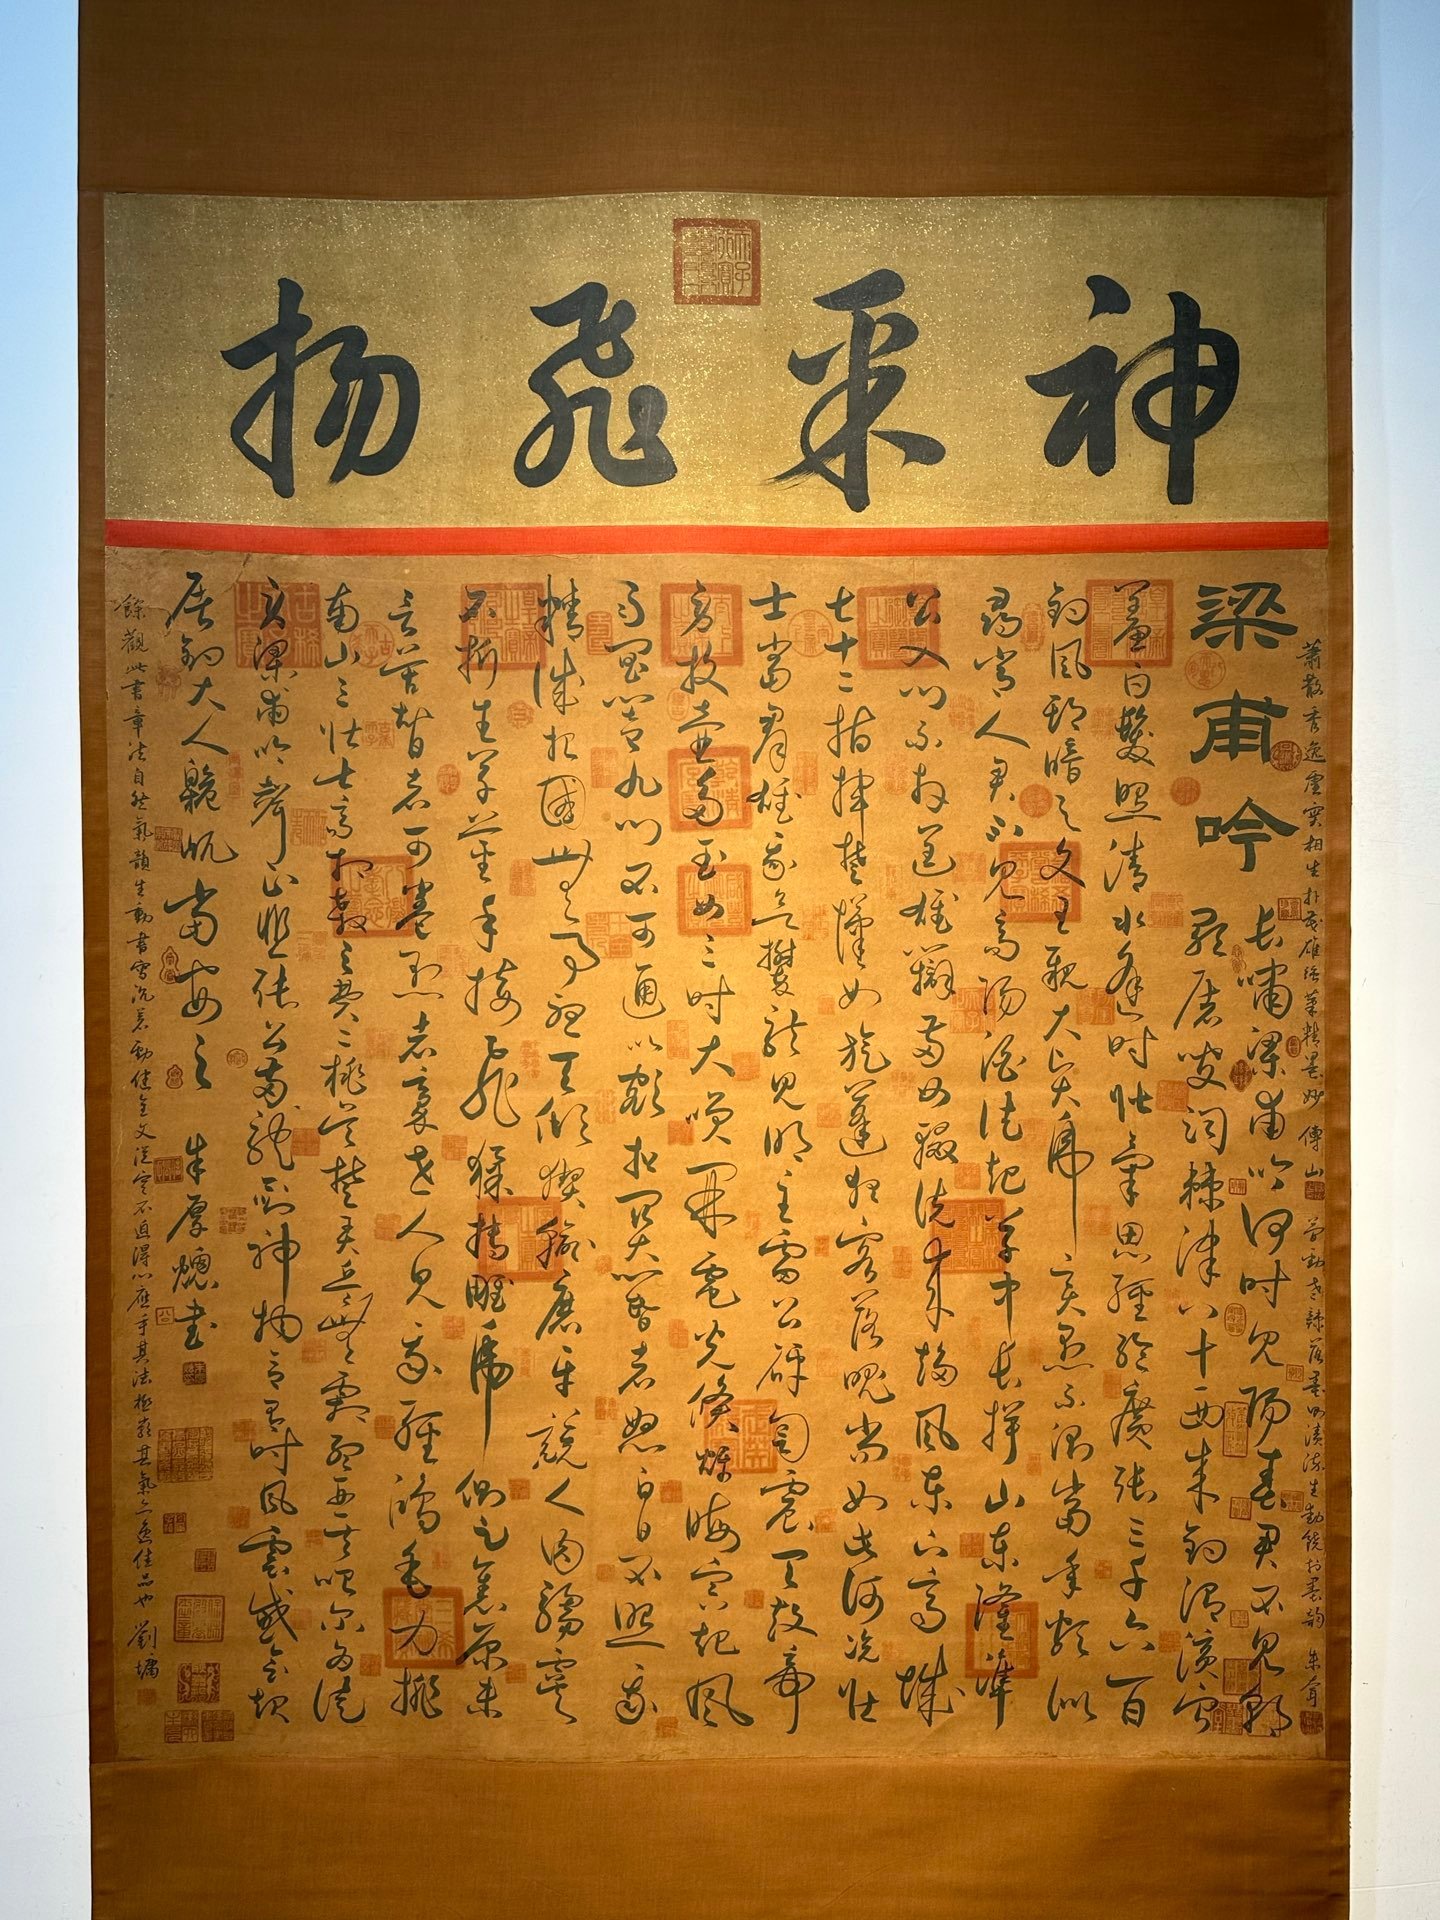 神采飛揚
蕭散秀逸虛實相生朴茂雄強筆精墨妙 傅山
生動饒於墨韻 朱耷
梁甫吟
長嘯梁甫吟何時見陽春君不見朝
歌屠叟詞棘津八十西來釣渭濱寧
羞白髮照清水逢時壯氣思經綸廣張三千六百
釣風期暗與文王親大賢虎變愚不測當年頗似
尋常人君不見高陽酒徒起草中長揖山東隆準
公入門不拜逞雄辯兩女輟洗來趨風東下齊城
七十二指揮楚漢如旋蓬狂客落魄尚如此何況壯
士當群雄我欲攀龍見明主雷公砰訇震天鼓帝
旁投壺多玉女三時大笑開電光倏爍晦冥起風
雨閶闔九門不可通以額扣關閽者怒白日不照我
精誠杞國無事憂天傾猰貐磨牙競人肉騶虞
不折生草莖手接飛猱搏雕虎側足焦原未
言苦智者可卷愚者豪世人見我輕鴻毛力排
南山三壯士齊相殺之費二桃吳楚弄兵無劇孟亞夫咍爾為徒
勞梁甫吟聲正悲張公兩龍劍神物合有時風雲感會起
屠釣大人臲卼當安之 朱厚熜書
餘觀此書章法自然氣韻生動書寫沉着勁健全文從容不迫得心應手其法極嚴其氣亦逸佳品也 劉墉